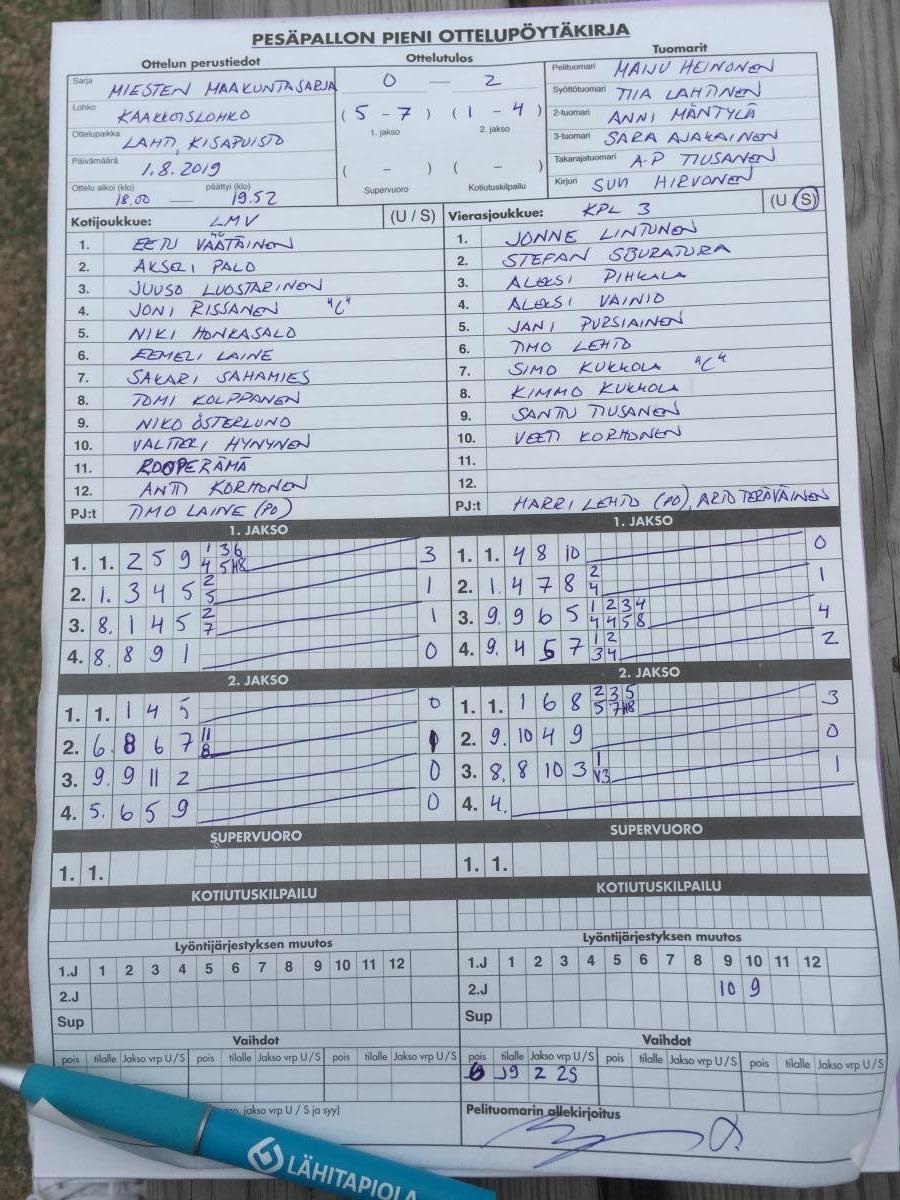 PESÄPALLON PIENI OTTELUPÖYTÄKIRJA
Ottelun perustiedot
Sarja MIESTEN MAAKUNTASARJA
Lohko KAAKKOISLOHKO
Ottelupaikka LAHTI, KISAPUISTO
Päivämäärä 1.8.2019
Ottelu alkoi (klo) päättyi (klo)
18.00 — 19.52
Ottelutulos
0 — 2
(5 - 7) (1 - 4)
1. jakso 2. jakso
( - ) ( - )
Supervuoro Kotiutuskilpailu
Tuomarit
Pelituomari MAIJU HEINONEN
Syöttötuomari TIIA LAHTINEN
2-tuomari ANNI MÄNTYLÄ
3-tuomari SARA AJAKAINEN
Takarajatuomari A-P TIUSANEN
Kirjuri SUVI HIRVONEN
Kotijoukkue: LMV (U / S)
1. EETU VÄÄTÄINEN
2. AKSELI PALO
3. JUUSO LUOSTARINEN
4. JONI RISSANEN "C"
5. NIKI HONKASALO
6. EEMELI LAINE
7. SAKARI SAHAMIES
8. TOMI KOLPPANEN
9. NIKO ÖSTERLUND
10. VALTTERI HYNYNEN
11. ROOPE RÄMÄ
12. ANTTI KORHONEN
PJ:t TIMO LAINE (PO)
Vierasjoukkue: KPL 3 (U / S)
1. JONNE LINTUNEN
2. STEFAN
3. ALEKSI PIHKALA
4. ALEKSI VAINIO
5. JANI PURSIAINEN
6. TIMO LEHTO
7. SIMO KUKKOLA "C"
8. KIMMO KUKKOLA
9. SANTTU TIUSANEN
10. VEETI KORHONEN
11.
12.
PJ:t HARRI LEHTO (PO), ARTO TERÄVÄINEN
1. JAKSO
1. 1. 2 5 9 1 3 6 3
4 5 H8
2. 1. 3 4 5 2 1
5
3. 8. 1 4 5 2 1
7
4. 8. 8 9 1 0
1. JAKSO
1. 1. 4 8 10 0
2. 1. 4 7 8 2 1
4
3. 9. 9 6 5 1 2 3 4 4
4 4 5 8
4. 9. 4 5 7 1 2 2
3 4
2. JAKSO
1. 1. 1 4 5 0
2. 6. 8 6 7 11 1
8
3. 9. 9 11 2 0
4. 5. 6 5 9 0
2. JAKSO
1. 1. 1 6 8 2 3 5 3
5 7 H8
2. 9. 10 4 9 0
3. 8. 8 10 3 1 1
V3
4. 4.
SUPERVUORO
1. 1.
SUPERVUORO
1. 1.
KOTIUTUSKILPAILU
KOTIUTUSKILPAILU
Lyöntijärjestyksen muutos
1.J 1 2 3 4 5 6 7 8 9 10 11 12
2.J
Sup
Lyöntijärjestyksen muutos
1.J 1 2 3 4 5 6 7 8 9 10 11 12
2.J 10 9
Sup
Vaihdot
pois tilalle Jakso vrp U / S pois tilalle Jakso vrp U / S pois tilalle Jakso vrp U / S
Vaihdot
pois tilalle Jakso vrp U / S pois tilalle Jakso vrp U / S pois tilalle Jakso vrp U / S
6 J9 2 2S
jakso vrp U / S ja syy)
Pelituomarin allekirjoitus
LÄHITAPIOLA